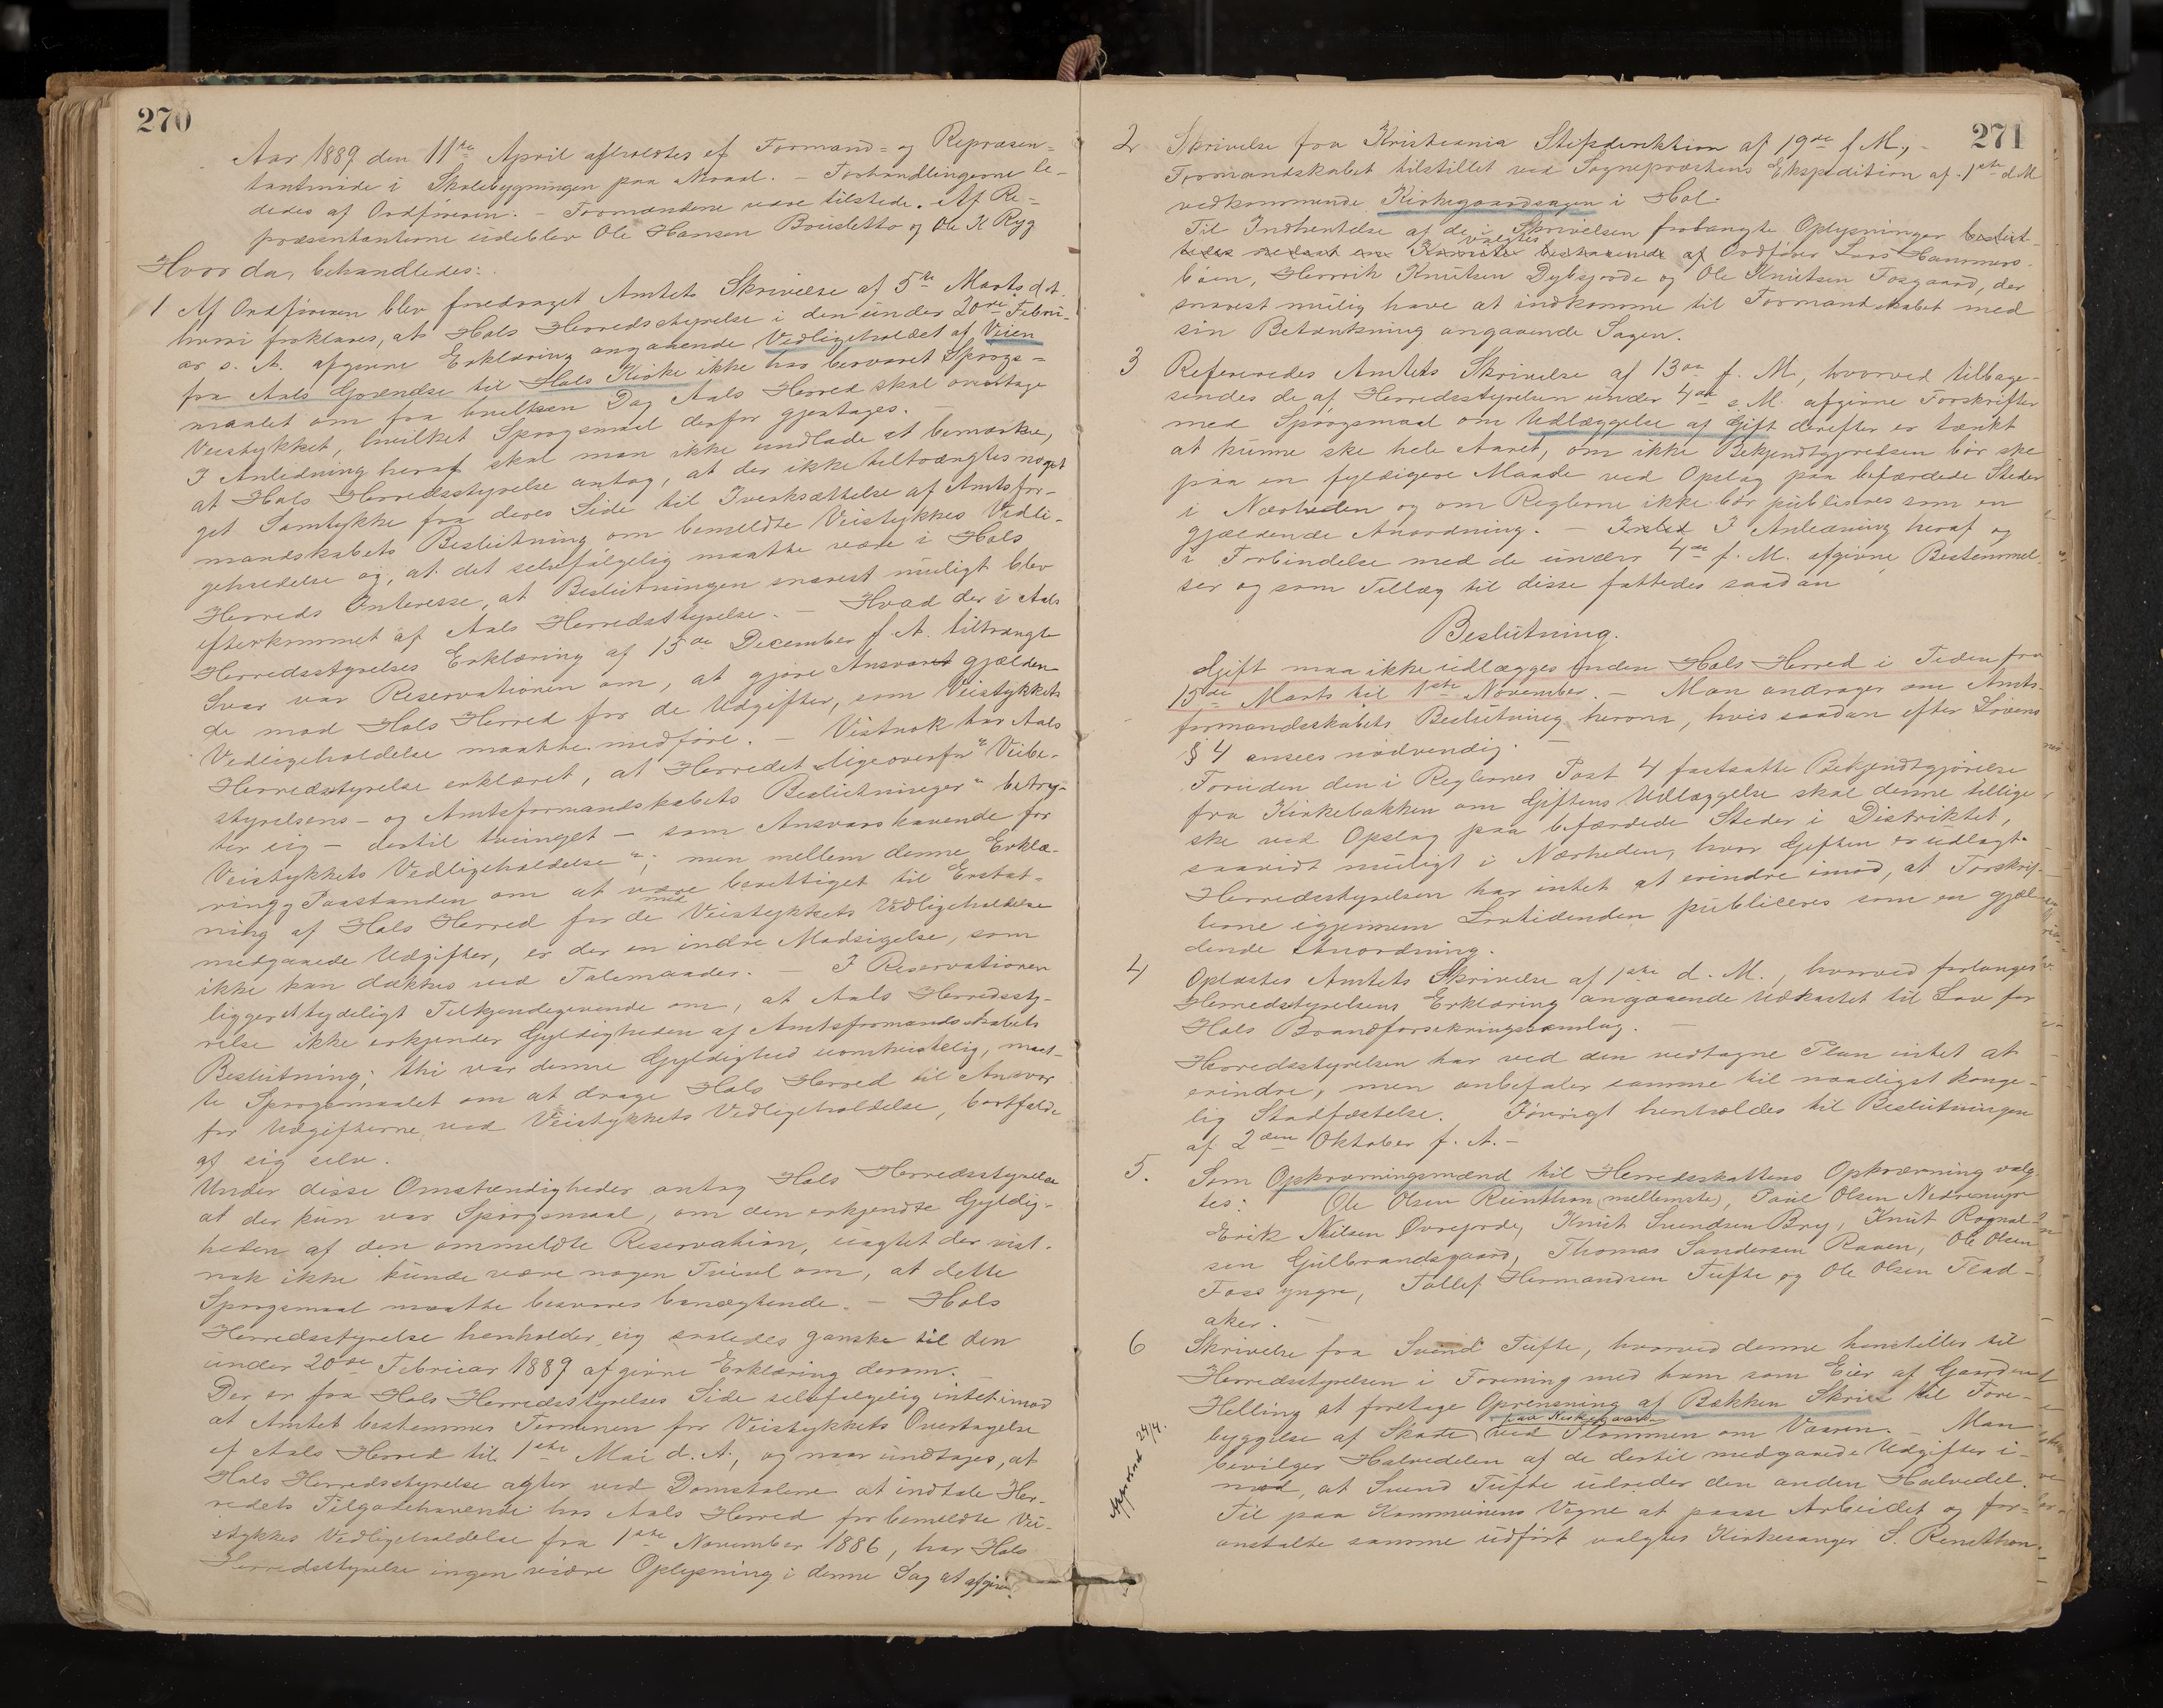 270
Aar 1889 den 11te April afholdtes et Formand- og Repræsen-
tantmøde i Skolebygningen paa Moaal. - Forhandlingerne le-
dedes af Ordføreren. - Formændene vare tilstede. - Af Re-
præsentanterne udeblev Ole Hansen Brusletto og Ole K Ryg
Hvor da behandledes:
1 Af Ordføreren blev foredraget Amtets Skrivelse af 5te Marts d. A.
hvori forklares, at Hols Herredsstyrelse i den under 20de Febru-
ar s. A. afgivne Erklæring angaaende Vedligeholdet af Veien
fra Aals Grændse til Hols Kirke ikke har besvaret Spørgs-
maalet om fra hvilken Dag Aals Herred skal overtage
Veistykket, hvilket Spørgsmaal derfor gjentages. -
I Anledning heraf skal man ikke undlade at bemærke,
at Hols Herredsstyrelse antog, at der ikke tiltrængtes noget
get Samtykke fra deres Side til Iverksættelse af Amtsfor-
mandskabets Beslutning om bemeldte Veistykkes Vedli-
geholdelse og, at det selvfølgelig maatte være i Hols
Herreds Interesse, at Beslutningen snarest muligt blev
efterkommet af Aals Herredsstyrelse. - Hvad der i Aals
Herredsstyrelses Erklæring af 15de December f. A. tiltrængte
Svar var Reservationen om, at gjøre Ansvaret gjælden-
de mod Hols Herred for de Udgifter, som Veistykkets
Vedligeholdelse maatte medføre. - Vistnok har Aals
Herredsstyrelse erklæret, at Herredet "ligeoverfor Veibe-
styrelsens - og Amtsformandskabets Beslutninger" betrag-
ter sig - dertil tvunget - som Ansvarshavende for
Veistykkets Vedligeholdelse"; men mellem denne Erklæ-
ring og Paastanden om at være berettiget til Erstat-
ning af Hols Herred for de med Veistykkets Vedligeholdelse
medgaaede Udgifter, er der en indre Modsigelse, som
ikke kan dækkes ved Talemaader. - I Reservationen
ligger et tydeligt Tilkjendegivende om, at Aals Herredssty-
relse ikke erkjender Gyldigheden af Amtsformandsskabets
Beslutning; thi var denne Gyldighed uomtvistelig, maat-
te Spørgsmaalet om at drage Hols Herred til Ansvar
for Udgifterne ved Veistykkets Vedligeholdelse, bortfalde
af sig selv.
Under disse Omstændigheder antog Hols Herredsstyrelse
at der kun var Spørgsmaal, om den erkjendte Gyldig-
heden af den ommeldte Reservation, uagtet der vist-
nok ikke kunde være nogen Tvivl om, at dette
Spørgsmaal maatte besvares benægtende. - Hols
Herredsstyrelse henholder sig saaledes ganske til den
under 20de Februar 1889 afgivne Erklæring derom.
Der er fra Hols Herredsstyrelses Side selvfølgelig intet imod
at Amtet bestemmes Terminen for Veistykkets Overtagelse
af Aals Herred til 1ste Mai d. A., og naar undtages, at
Hols Herredsstyrelse agter ved Domstolene at indtale Her-
redets Tilgodehavende hos Aals Herred for bemeldte Vei-
stykkes Vedligeholdelse fra 1ste November 1886, har Hols
Herredsstyrelse ingen videre Oplysning i denne Sag at afgive.
271
2 Skrivelse fra Kristiania Stiftsdirektion af 19de f. M.,
Formandskabet tilstillet ved Sognepræstens Ekspedition af 1ste d. M
vedkommende Kirkegaardsagen i Hol.
Til Indhentelse af de i Skrivelsen forlangte Oplysninger beslut-
tedes nedsat en Komite bestaaende valgtes af Ordfører Lars Hammers-
bøen, Henrik Knutsen Dybsjorde og Ole Knutsen Fosgaard, der
snarest mulig have at indkomme til Formandskabet med
sin Betænkning angaaende Sagen.
3 Refereredes Amtets Skrivelse af 13de f. M., hvorved tilbage-
sendes de af Herredsstyrelsen under 4de s. M. afgivne Forskrifter
med Spørgsmaal om Udlæggelse af Gift derefter er tænkt
at kunne ske hele Aaret, om ikke Bekjendtgjørelsen bør ske
paa en fyldigere Maade ved Opslag paa befærdede Steder
i Nærheden og om Reglerne ikke bør publiceres som en
gjældende Anordning. - I Anledning heraf og
i Forbindelse med de under 4de f. M. afgivne Bestemmel-
ser og som Tillæg til disse fattedes saadan
Beslutning.
Gift maa ikke udlægges inden Hols Herred i Tiden fra
15de Marts til 1ste November. - Man andrager om Amts-
formandsskabets Beslutning herom, hvis saadan efter Lovens
§ 4 ansees nødvendig. -
Foruden den i Reglernes Post 4 fastsatte Bekjendtgjørelse
fra Kirkebakken om Giftens Udlæggelse skal denne tillige
ske ved Opslag paa befærdede Steder i Distriktet,
saavidt muligt i Nærheden, hvor Giften er udlagt.
Herredsstyrelsen har intet at erindre imod, at Forskrif-
terne igjennem Lovtidenden publiceres som en gjæl-
dende Anordning.
4 Oplæstes Amtets Skrivelse af 1ste d. M., hvorved forlanges
Herredsstyrelsens Erklæring angaaende Udkastet til Lov for
Hols Brandforsikringssamlag. -
Herredsstyrelsen har ved den vedtagne Plan intet at
erindre, men anbefaler samme til naadigst konge-
lig Stadfæstelse. Iøvrigt henholdes til Beslutningen
af 2den Oktober f. A. -
5. Som Opkrævningsmænd til Herredsskattens Opkrævning valg-
tes: Ole Olsen Reinthon (mellemste), Paul Olsen Nedrenyre
Erik Nilsen Øvrejorde, Knut Svendsen Bry, Knut Rognal-
sen Gulbrandsgaard, Thomas Sandersen Raaen, Ole Olsen
Foss yngre, Tollef Hermandsen Tufte og Ole Olsen Flad-
aker. -
6 Skrivelse fra Svend Tufte, hvorved denne henstilles til
Herredsstyrelsen i Forening med ham som Eier af Gaarden
Helling at foretage Oprensning af Bækken Skrira til Fore-
byggelse af Skade paa Kirkegaarden ved Flommen om Vaaren. - Man
bevilger Halvedelen af de dertil medgaaede Udgifter i-
mod, at Svend Tufte udreder den anden Halvedel.
Til paa Kommunens Vegne at paase Arbeidet og for-
anstalte samme udført valgtes Kirkesanger S. Reinthon.
24/4.